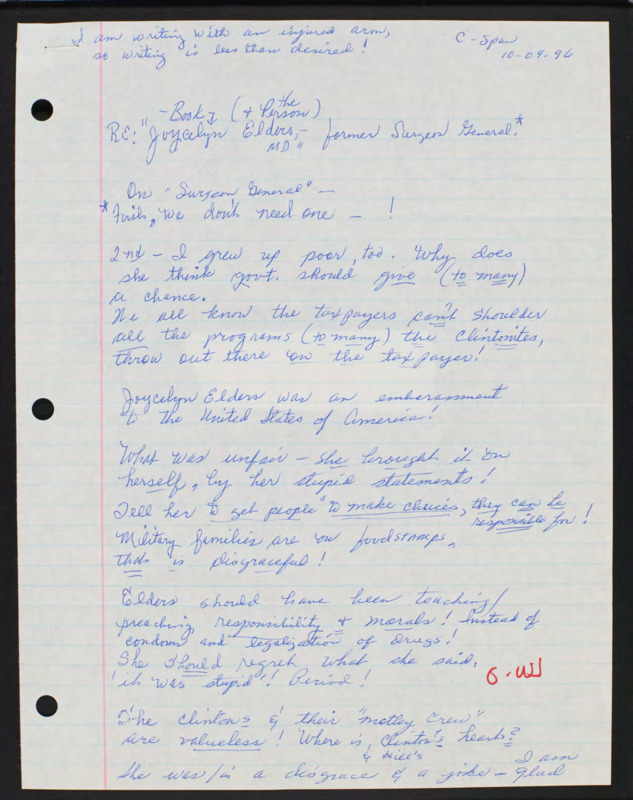 I am writing with an injured arm,
so writing is less than desired!
C-Span
10-09-96
-Book, (& the Person)
RE: "Joycelyn Elders,- former Surgeon General.*
MD"
On "Surgeon General" -
* First, we don't need one - !
2nd - I grew up poor, too. Why does
she think govt. should give (to many)
a chance.
We all know the taxpayers can't shoulder
all the programs (to many) the Clintonites,
throw out there on the tax payer!
Joycelyn Elders was an embarasment
to the United States of America!
What was unfair - she brought it on
herself, by her stupid statements!
Tell her to get people "to make choices, they can be
responsible for!
Military families are on foodstamps,
this is disgraceful!
Elders should have been teaching/
preaching responsibility & morals! Instead of
condoms and legalization of drugs!
She should regret what she said,
it was stupid!! Period!
6-WJ
The Clintons & their "motley crew"
are valueless! Where is, Clinton's hearts?
& Hill's
She was/is a disgrace & a joke - I am
glad